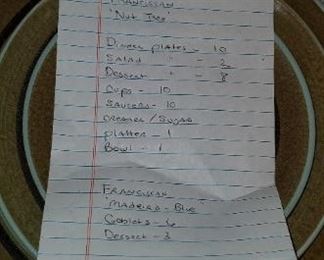 FRANCISCAN
"Nut Tree"
Dinner plates - 10
Salad " - 2
Dessert " - 8
Cups - 10
Saucers - 10
creamer / Sugar
platter - 1
Bowl - 1
FRANCISCAN
"Madeira - Blue"
Goblets - 6
Dessert - 3